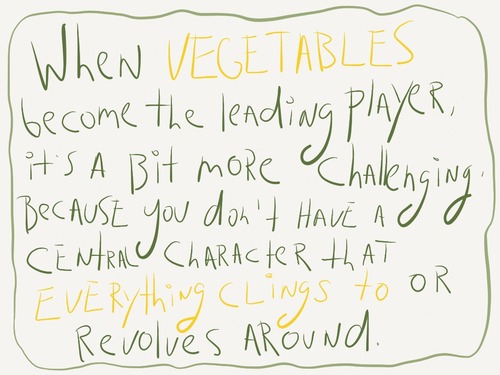 When VEGETABLES
become the leading player,
it's A Bit more challenging.
Because you don't HAVE A
CENTRAL CHARACTER that
EVERYthing CLINGS to OR
Revolves AROUND.